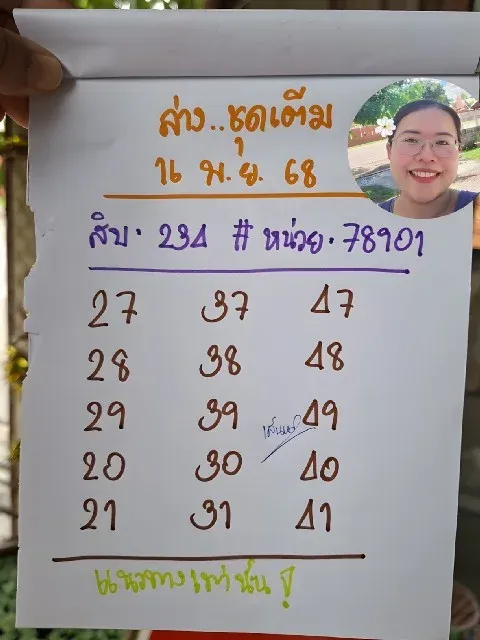 ล่าง..ชุดเต็ม
16 พ.ย. 68
สิบ. 234 # หน่วย. 78901
27 37 47
28 38 48
29 39 49
20 30 40
21 31 41
แนวทางเท่านั้น